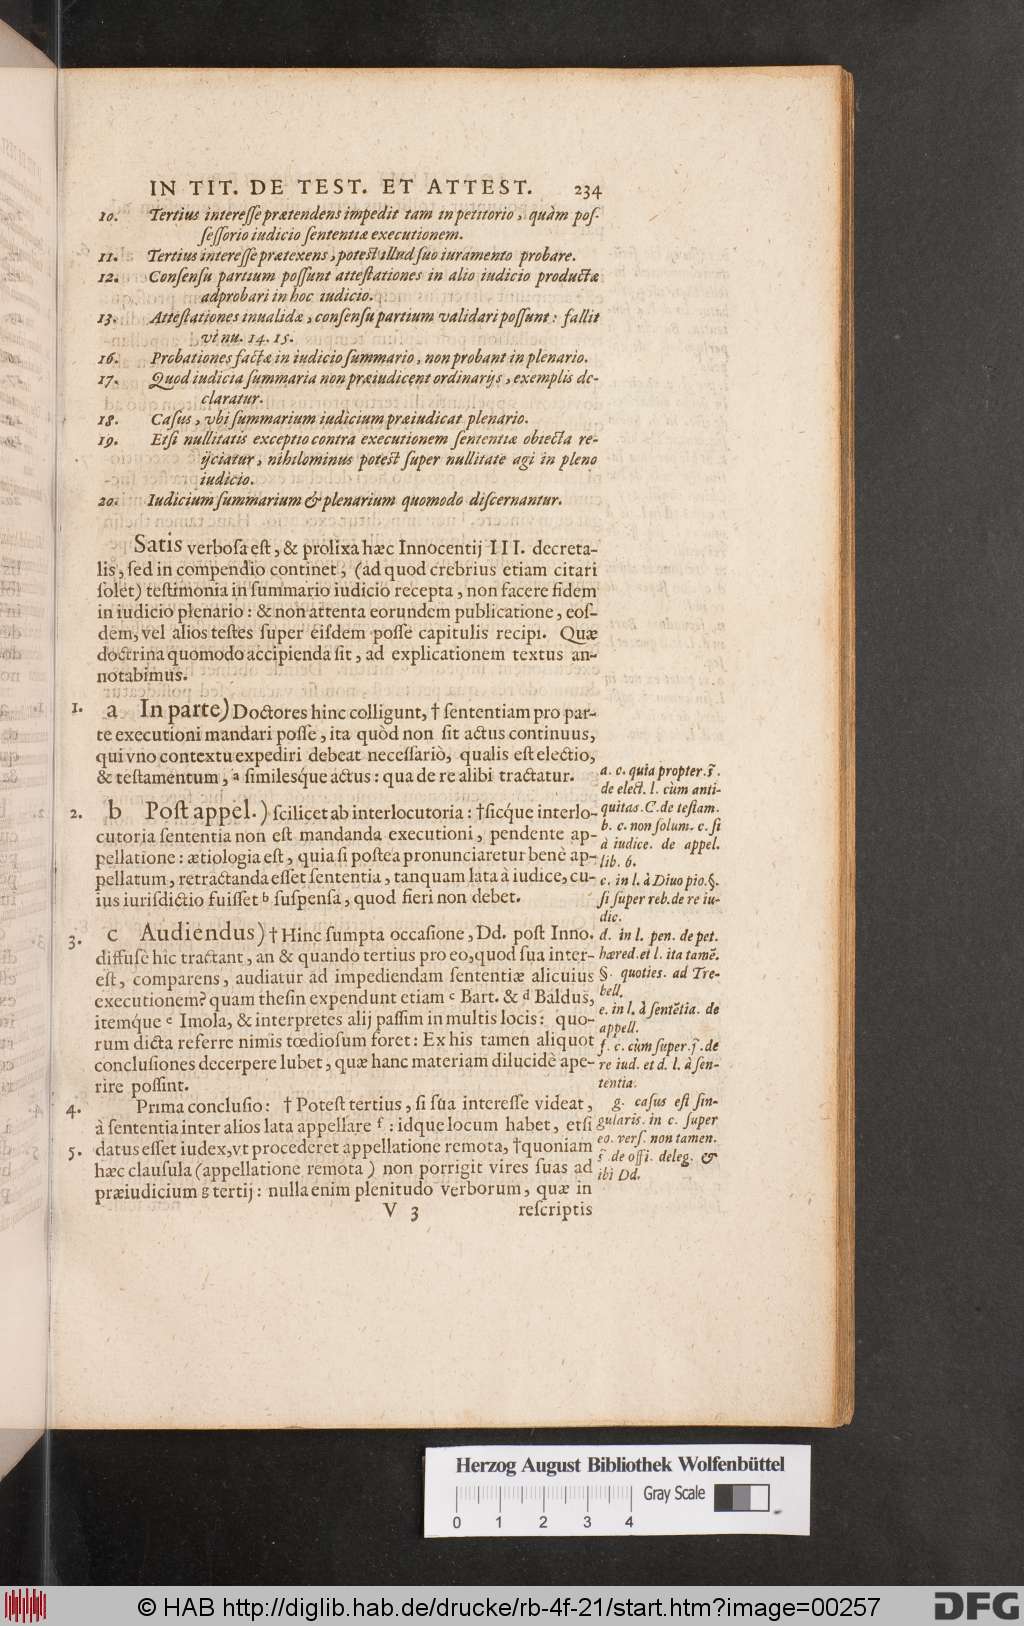 IN TIT. DE TEST. ET ATTEST. 234
10. Tertius interesse prætendens impedit tam in petitorio, quàm pos-
sessorio iudicio sententiæ executionem.
11. Tertius interesse prætexens, potest illud suo iuramento probare.
12. Consensu partium possunt attestationes in alio iudicio productæ
adprobari in hoc iudicio.
13. Attestationes inualidæ, consensu partium validari possunt: fallit
vt nu. 14. 15.
16. Probationes factæ in iudicio summario, non probant in plenario.
17. Quod iudicia summaria non præiudicent ordinarijs, exemplis de-
claratur.
18. Casus, vbi summarium iudicium præiudicat plenario.
19. Etsi nullitatis exceptio contra executionem sententiæ obiecta re-
ijciatur, nihilominus potest super nullitate agi in pleno
iudicio.
20. Iudicium summarium & plenarium quomodo discernantur.
Satis verbosa est, & prolixa hæc Innocentij III. decreta-
lis, sed in compendio continet, (ad quod crebrius etiam citari
solet) testimonia in summario iudicio recepta, non facere fidem
in iudicio plenario: & non attenta eorundem publicatione, eos-
dem, vel alios testes super eisdem posse capitulis recipi. Quæ
doctrina quomodo accipienda sit, ad explicationem textus an-
notabimus.
1. a In parte) Doctores hinc colligunt, † sententiam pro par-
te executioni mandari posse, ita quòd non sit actus continuus,
qui vno contextu expediri debeat necessariò, qualis est electio,
& testamentum, a similesque actus: qua de re alibi tractatur.
2. b Post appel.) scilicet ab interlocutoria: † sicque interlo-
cutoria sententia non est mandanda executioni, pendente ap-
pellatione: ætiologia est, quia si postea pronunciaretur benè ap-
pellatum, retractanda esset sententia, tanquam lata à iudice, cu-
ius iurisdictio fuisset b suspensa, quod fieri non debet.
3. c Audiendus) † Hinc sumpta occasione, Dd. post Inno.
diffusè hic tractant, an & quando tertius pro eo, quod sua inter-
est, comparens, audiatur ad impediendam sententiæ alicuius
executionem? quam thesin expendunt etiam c Bart. & d Baldus,
itemque e Imola, & interpretes alij passim in multis locis: quo-
rum dicta referre nimis tœdiosum foret: Ex his tamen aliquot
conclusiones decerpere lubet, quæ hanc materiam dilucidè ape-
rire possint.
4. Prima conclusio: † Potest tertius, si sua interesse videat,
à sententia inter alios lata appellare f: idque locum habet, etsi
5. datus esset iudex, vt procederet appellatione remota, † quoniam
hæc clausula (appellatione remota) non porrigit vires suas ad
præiudicium g tertij: nulla enim plenitudo verborum, quæ in
V 3 rescriptis
a. c. quia propter. §.
de elect. l. cùm anti-
quitas. C. de testam.
b. c. non solum. c. si
à iudice. de appel.
lib. 6.
c. in l. à Diuo pio. §.
si super reb. de re iu-
dic.
d. in l. pen. de pet.
hæred. et l. ita tamē.
§. quoties. ad Tre-
bell.
e. in l. à sentētia. de
appell.
f. c. cùm super. j̄. de
re iud. et d. l. à sen-
tentia.
g. casus est sin-
gularis. in c. super
eo. vers. non tamen.
s̄ de offi. deleg. &
ibi Dd.
Herzog August Bibliothek Wolfenbüttel
Gray Scale
0 1 2 3 4
© HAB http://diglib.hab.de/drucke/rb-4f-21/start.htm?image=00257
DFG